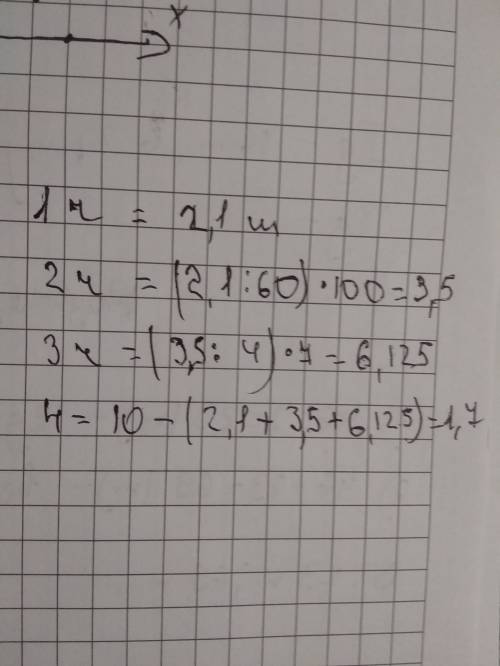 x
1 ч = 2,1 ц
2 ч = (2,1:60)·100=3,5
3 ч = (3,5:4)·7=6,125
4= 10-(2,1+3,5+6,125)=1,7